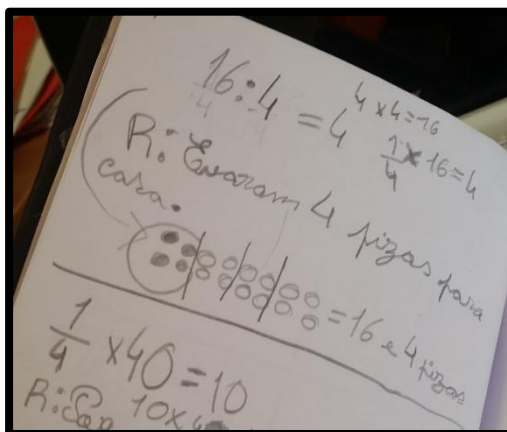 16:4=4
4x4=16
1/4 x 16=4
R: Evaram 4 pizas para
casa.
=16 e 4 pizas
1/4 x40=10
R:
10x4